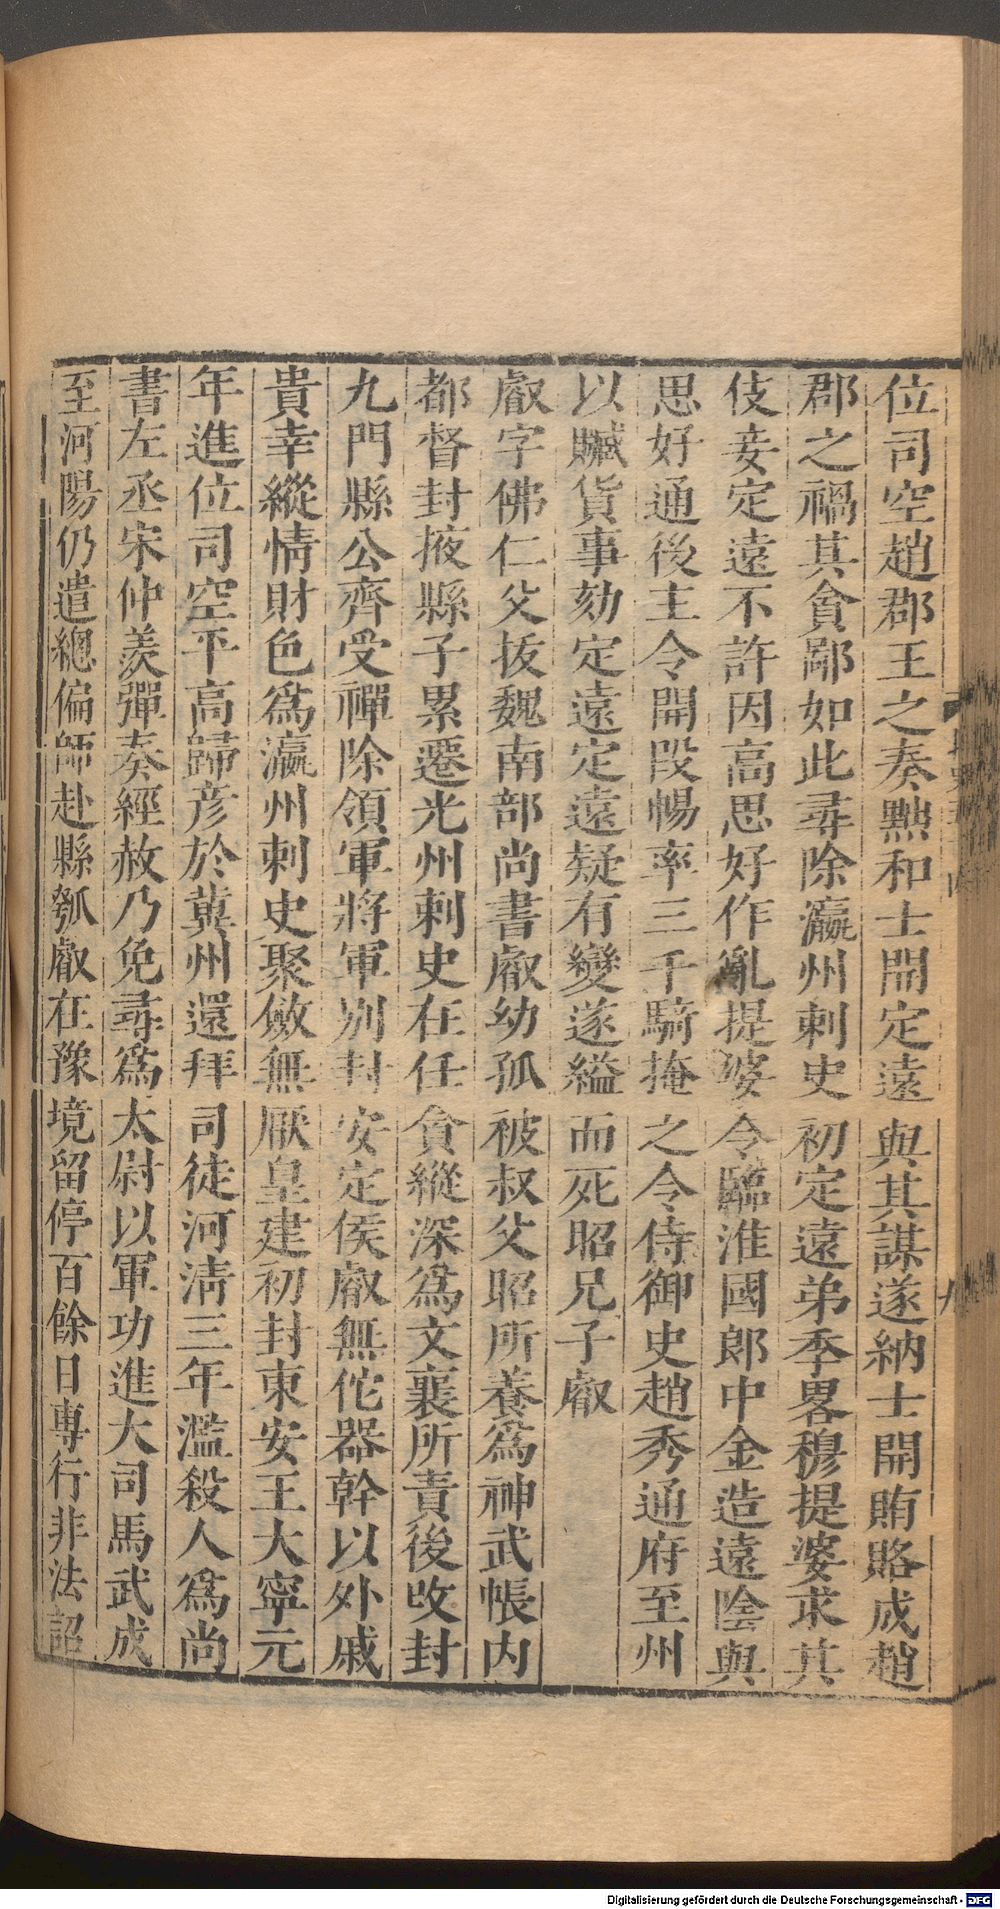 位司空趙郡王之奏黜和士開定遠與其謀遂納士開賄賂成趙
郡之禍其貪鄙如此尋除瀛州刺史初定遠弟季畧穆提婆求其
伎妾定遠不許因高思好作亂提婆令臨淮國郎中金造遠陰與
思好通後主令開段暢率三千騎掩之令侍御史趙秀通府至州
以贓貨事劾定遠定遠疑有變遂縊而死昭兄子叡
叡字佛仁父拔魏南部尚書叡幼孤被叔父昭所養爲神武帳内
都督封掖縣子累遷光州刺史在任貪縱深爲文襄所責後改封
九門縣公齊受禪除領軍將軍別封安定侯叡無佗器幹以外戚
貴幸縱情財色爲瀛州刺史聚斂無厭皇建初封東安王大寧元
年進位司空平高歸彦於冀州還拜司徒河清三年濫殺人爲尚
書左丞宋仲羨彈奏經赦乃免尋爲太尉以軍功進大司馬武成
至河陽仍遣總偏師赴縣瓠叡在豫境留停百餘日專行非法詔
Digitalisierung gefördert durch die Deutsche Forschungsgemeinschaft - DFG